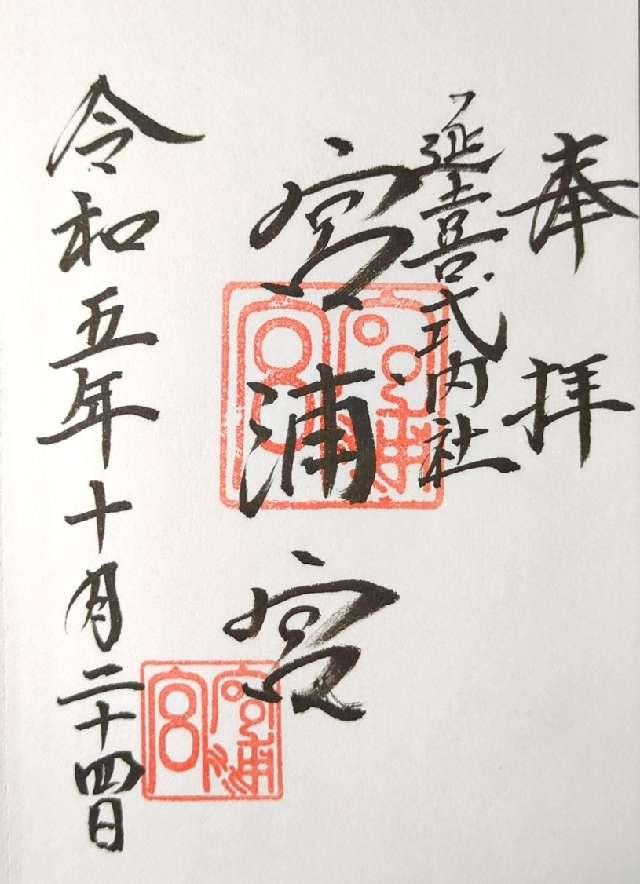 奉拝
延喜式内社
宮浦宮
宮浦宮
宮浦宮
令和五年十月二十四日